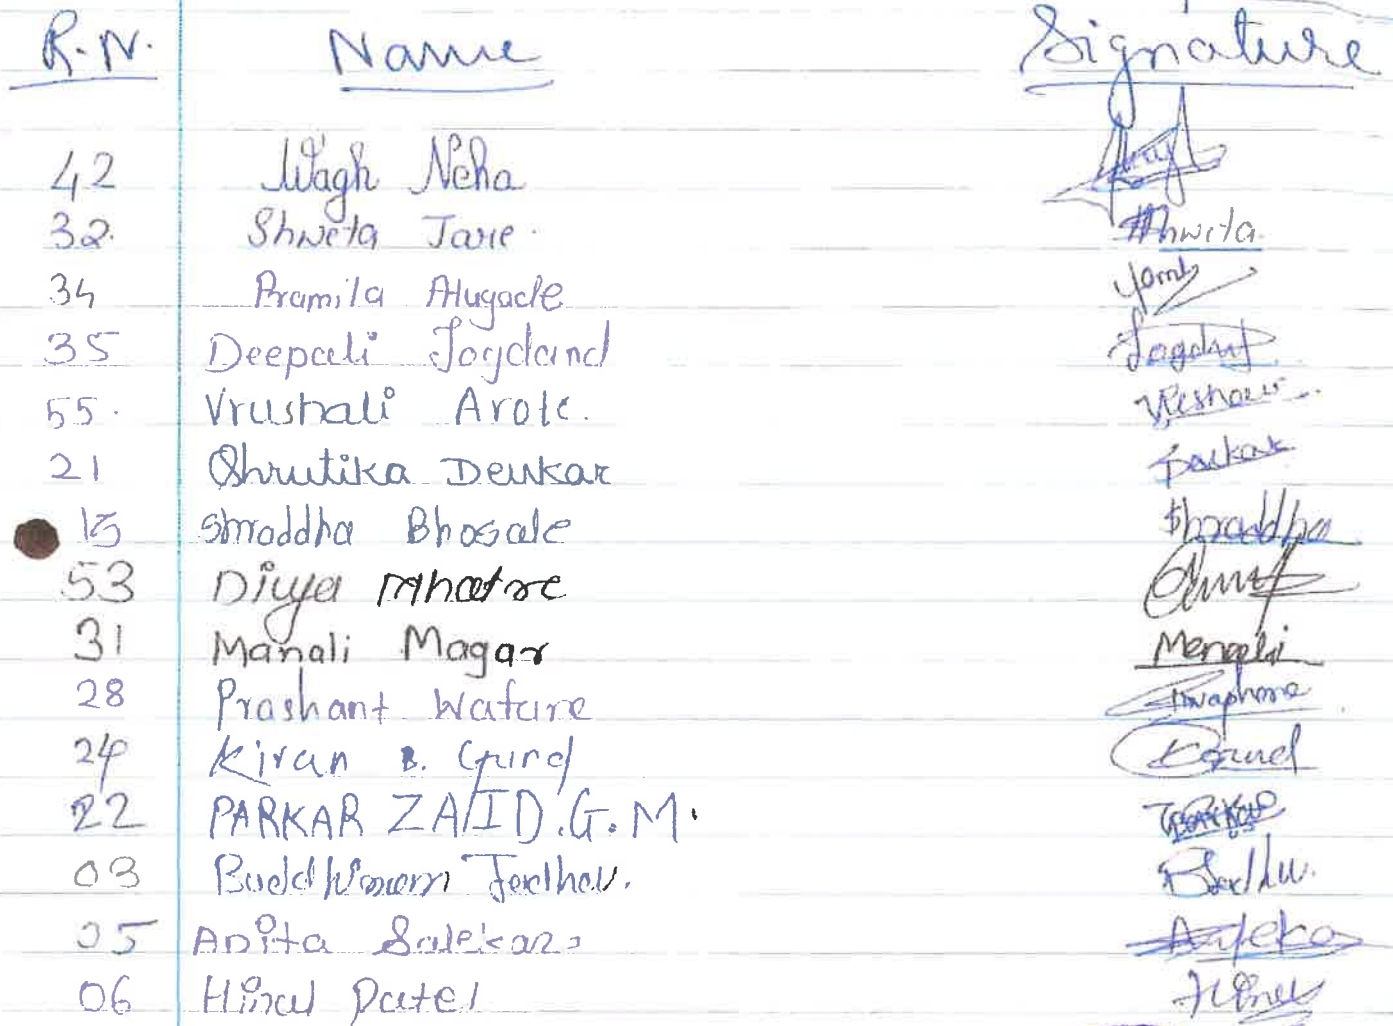 R.N. Name Signature
42 Wagh Neha
32. Shweta Jare. Shweta
34 Pramila Alugade
35 Deepali Jogdand Jogdand
55. Vrushali Arote.
21 Shrutika Devkar Devkar
15 Shraddha Bhosale Shraddha
53 Divya Mhatre
31 Manali Magar
28 Prashant Watare
24 Kiran B. Gund
22 PARKAR ZAID.G.M. Parkar
03 Jadhav.
05 Anita Salekar
06 Hiral Patel Hiral